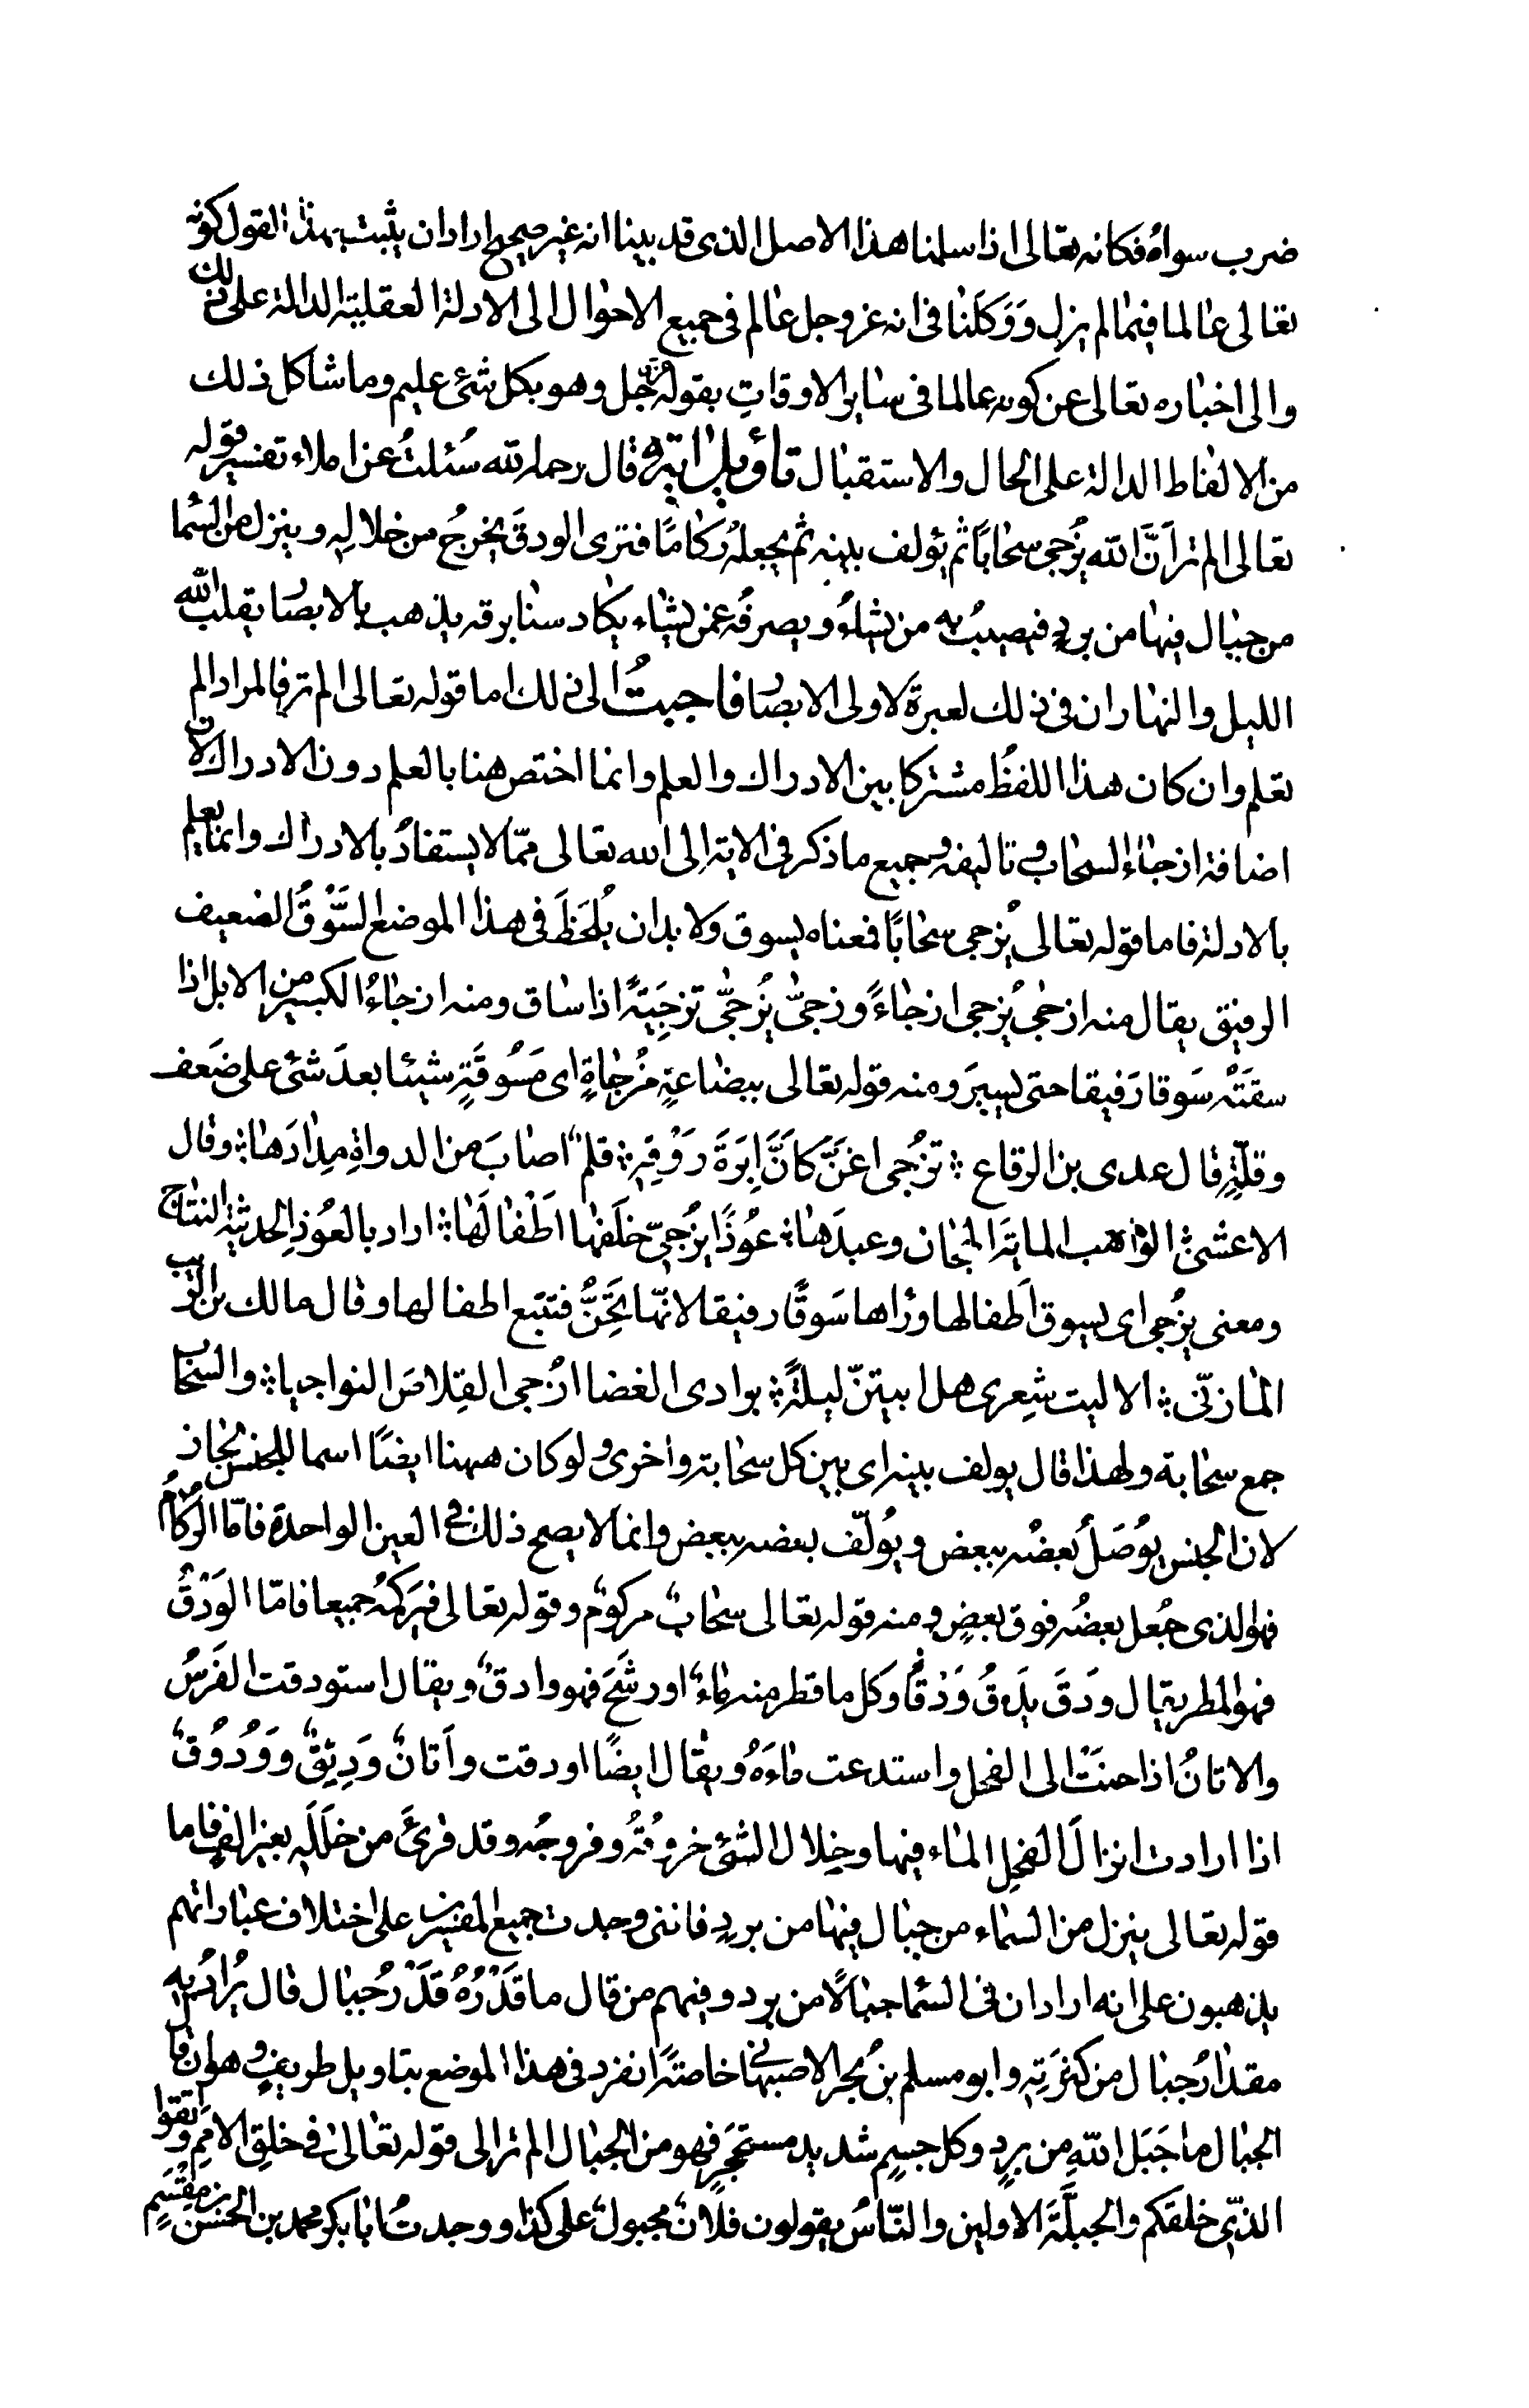 ضرب سواه فكانه تعالى اذا سلمنا هذا الاصل الذى قد بينا انه غير صحيح اراد ان يثبت بهذا القول كونه
تعالى عالما فيما لم يزل ووكلنا فى انه عز وجل عالم فى جميع الاحوال الى الادلة العقلية الدالة على ذلك
والى اخباره تعالى عن كونه عالما فى ساير الاوقات بقوله عز وجل وهو بكل شئ عليم وما شاكل ذلك
من الالفاظ الدالة على الحال والاستقبال تاويل اية قال رحمه الله سئلت عن املاء تفسير قوله
تعالى الم تر ان الله يزجى سحابا ثم يؤلف بينه ثم يجعله ركاما فترى الودق يخرج من خلاله وينزل من السما
من جبال فيها من برد فيصيب به من يشاء ويصرفه عمن يشاء يكاد سنا برقه يذهب بالابصار يقلب الله
الليل والنهار ان فى ذلك لعبرة لاولى الابصار فاجبت الى ذلك اما قوله تعالى الم تر فالمراد الم
تعلم وان كان هذا اللفظ مشتركا بين الادراك والعلم وانما اختص هنا بالعلم دون الادراك لان
اضافة ازجاء السحاب وتاليفه وجميع ما ذكر فى الاية الى الله تعالى مما لا يستفاد بالادراك وانما يعلم
بالادلة فاما قوله تعالى يزجى سحابا فمعناه يسوق ولا بد ان يلحظ فى هذا الموضع السوق الضعيف
الرفيق يقال منه ازجى يزجى ازجاء وزجى يزجى تزجية اذا ساق ومنه ازجاء الكسير من الابل اذا
سقته سوقا رفيقا حتى يسير ومنه قوله تعالى ببضاعة مزجاة اى مسوقة شيئا بعد شئ على ضعف
وقلة قال عدى بن الرقاع ؛ تزجى اغن كان ابرة روقه ؛ قلم اصاب من الدواة مدادها ؛ وقال
الاعشى ؛ الواهب الماية الهجان وعبدها ؛ عوذا يزجى خلفها اطفالها ؛ اراد بالعوذ الحديثة النتاج
ومعنى يزجى اى يسوق اطفالها وراها سوقا رفيقا لانها تحن فتتبع اطفالها وقال مالك بن الريب
المازنى ؛ الا ليت شعرى هل ابيتن ليلة ؛ بوادى الغضا ازجى القلاص النواجيا ؛ والسحاب
جمع سحابة ولهذا قال يولف بينه اى بين كل سحابة واخرى ولو كان ههنا ايضا اسما للجنس لجاز
لان الجنس يوصل بعضه ببعض ويؤلف بعضه ببعض وانما لا يصح ذلك فى العين الواحدة فاما الركام
فهو الذى جعل بعضه فوق بعض ومنه قوله تعالى سحاب مركوم وقوله تعالى فيركمه جميعا فاما الودق
فهو المطر يقال ودق يدق ودقا وكل ما قطر منه ماء او رشح فهو وادق ويقال استودقت الفرس
والاتان اذا حنت الى الفحل واستدعت ماءه ويقال ايضا اودقت واتان وديق وودوق
اذا ارادت انزال الفحل الماء فيها وخلال الشئ خروقه وفروجه وقد قرئ من خلله بغير الف فاما
قوله تعالى ينزل من السماء من جبال فيها من برد فاننى وجدت جميع المفسرين على اختلاف عباراتهم
يذهبون على انه اراد ان فى السما جبالا من برد وفيهم من قال ما قدره قدر جبال قال يراد به
مقدار جبال من كثرته وابو مسلم بن بحر الاصبهانى خاصة انفرد فى هذا الموضع بتاويل طريف وهو ان قال
الجبال ما جبل الله من برد وكل جسم شديد مستحجر فهو من الجبال الم تر الى قوله تعالى فى خلق الامم واتقوا
الذى خلقكم والجبلة الاولين والناس يقولون فلان مجبول على كذا ووجدت ابا بكر محمد بن الحسن بن مقسم